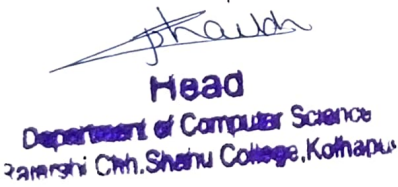 Head
Department of Computer Science
Rajarshi Chh. Shahu College, Kolhapur